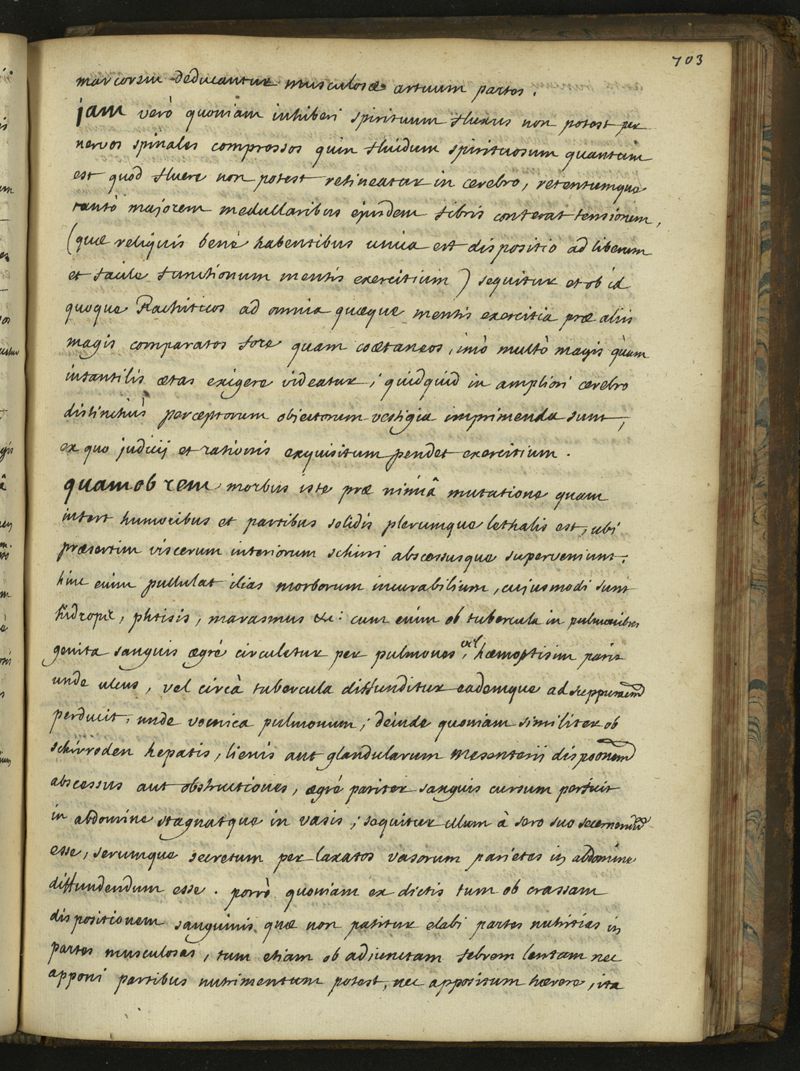 703
marcorem deducantur musculosæ artuum partes.
jam verò quoniam inhiberi spirituum fluxus non potest per
nervos spinales compressos quin fluidum spirituosum quantum
est quod fluere non potest retineatur in cerebro, retentumque
tantò majorem medullaribus ejusdem fibris conferat tensionem,
(quæ reliquis benè habentibus unica est dispositio ad liberum
et facile functionum mentis exercitium) sequitur et ob id
quoque Rachiticos ad omnia quæque mentis exercitia præ aliis
magis comparatos fore quam coætaneos, imò multò magis quam
infantilis ætas exigere videatur, quidquid in ampliori cerebro
distinctiùs perceptorum objectorum vestigia imprimenda sunt,
ex quo judicij et rationis exquisitum pendet exercitium.
quamobrem morbus iste præ nimiâ mutatione quam
infert humoribus et partibus solidis plerumque lethalis est, ubi
præsertim viscerum interiorum schirri abscessusque superveniunt:
hinc enim pullulat ilias morborum incurabilium, cujusmodi sunt
hidrops, phtisis, marasmus &c: cum enim ob tubercula in pulmonibus
genita sanguis ægrè circuletur per pulmones, vel hæmoptisim parit
unde ulcus, vel circà tubercula diffunditur eademque ad suppuraonem
perducit, unde vomica pulmonum; deinde quoniam similiter ob
schirroden hepatis, lienis aut glandularum mesenterij disposonem
abscessus aut obstructiones, ægrè pariter sanguis cursum perficit
in abdomine stagnatque in vasis; sequitur illum à sero suo secernendum
esse, serumque secretum per laxatos vasorum parietes in abdomine
diffundendum esse. porrò quoniam ex dictis tum ob crassam
dispositionem sanguinis quæ non patitur elabi partes nutritias in
partes musculosas, tum etiam ob adjunctam febrem lentam nec
apponi partibus nutrimentum potest, nec appositum hærere, ita